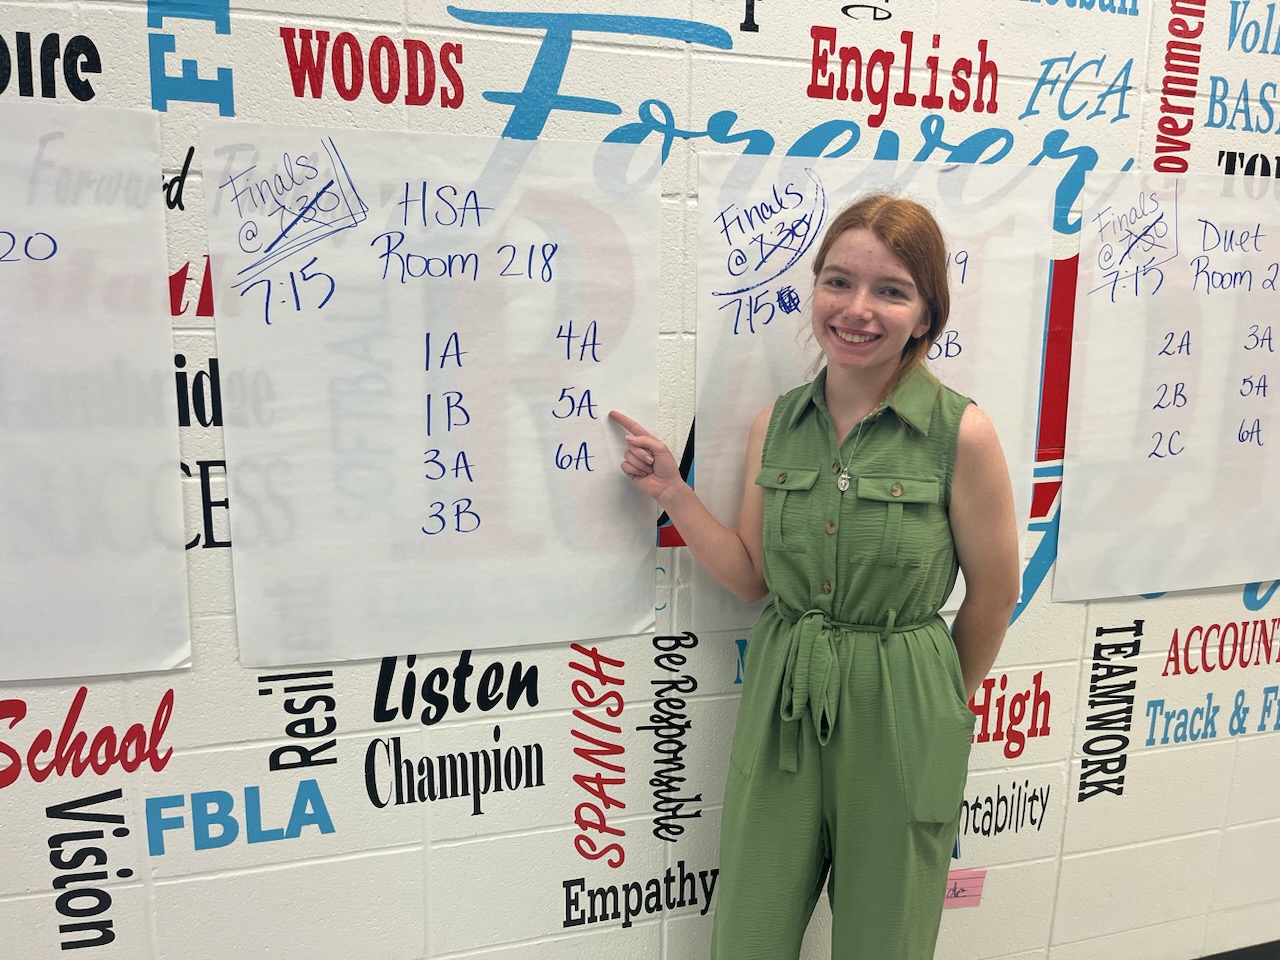 WOODS
Forever
English
FCA
overnmen
Voll
BAS
20
Finals
@ 7:30
7:15
HSA
Room 218
1A
1B
3A
3B
4A
5A
6A
Finals
@ 7:30
7:15
19
Finals
@ 7:30
7:15
Duet
Room 2
2A
2B
2C
3A
5A
6A
School
Vision
FBLA
Resil
Listen
Champion
SPANISH
Be Responsible
Empathy
High
ntability
TEAMWORK
ACCOUNT
Track & Fi